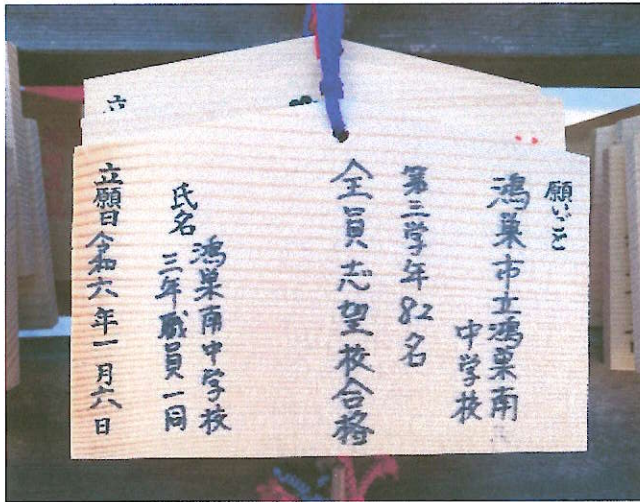 願いごと
鴻巣市立鴻巣南
中学校
第三学年82名
全員志望校合格
鴻巣南中学校
氏名 三年職員一同
立願日 令和六年一月六日
立